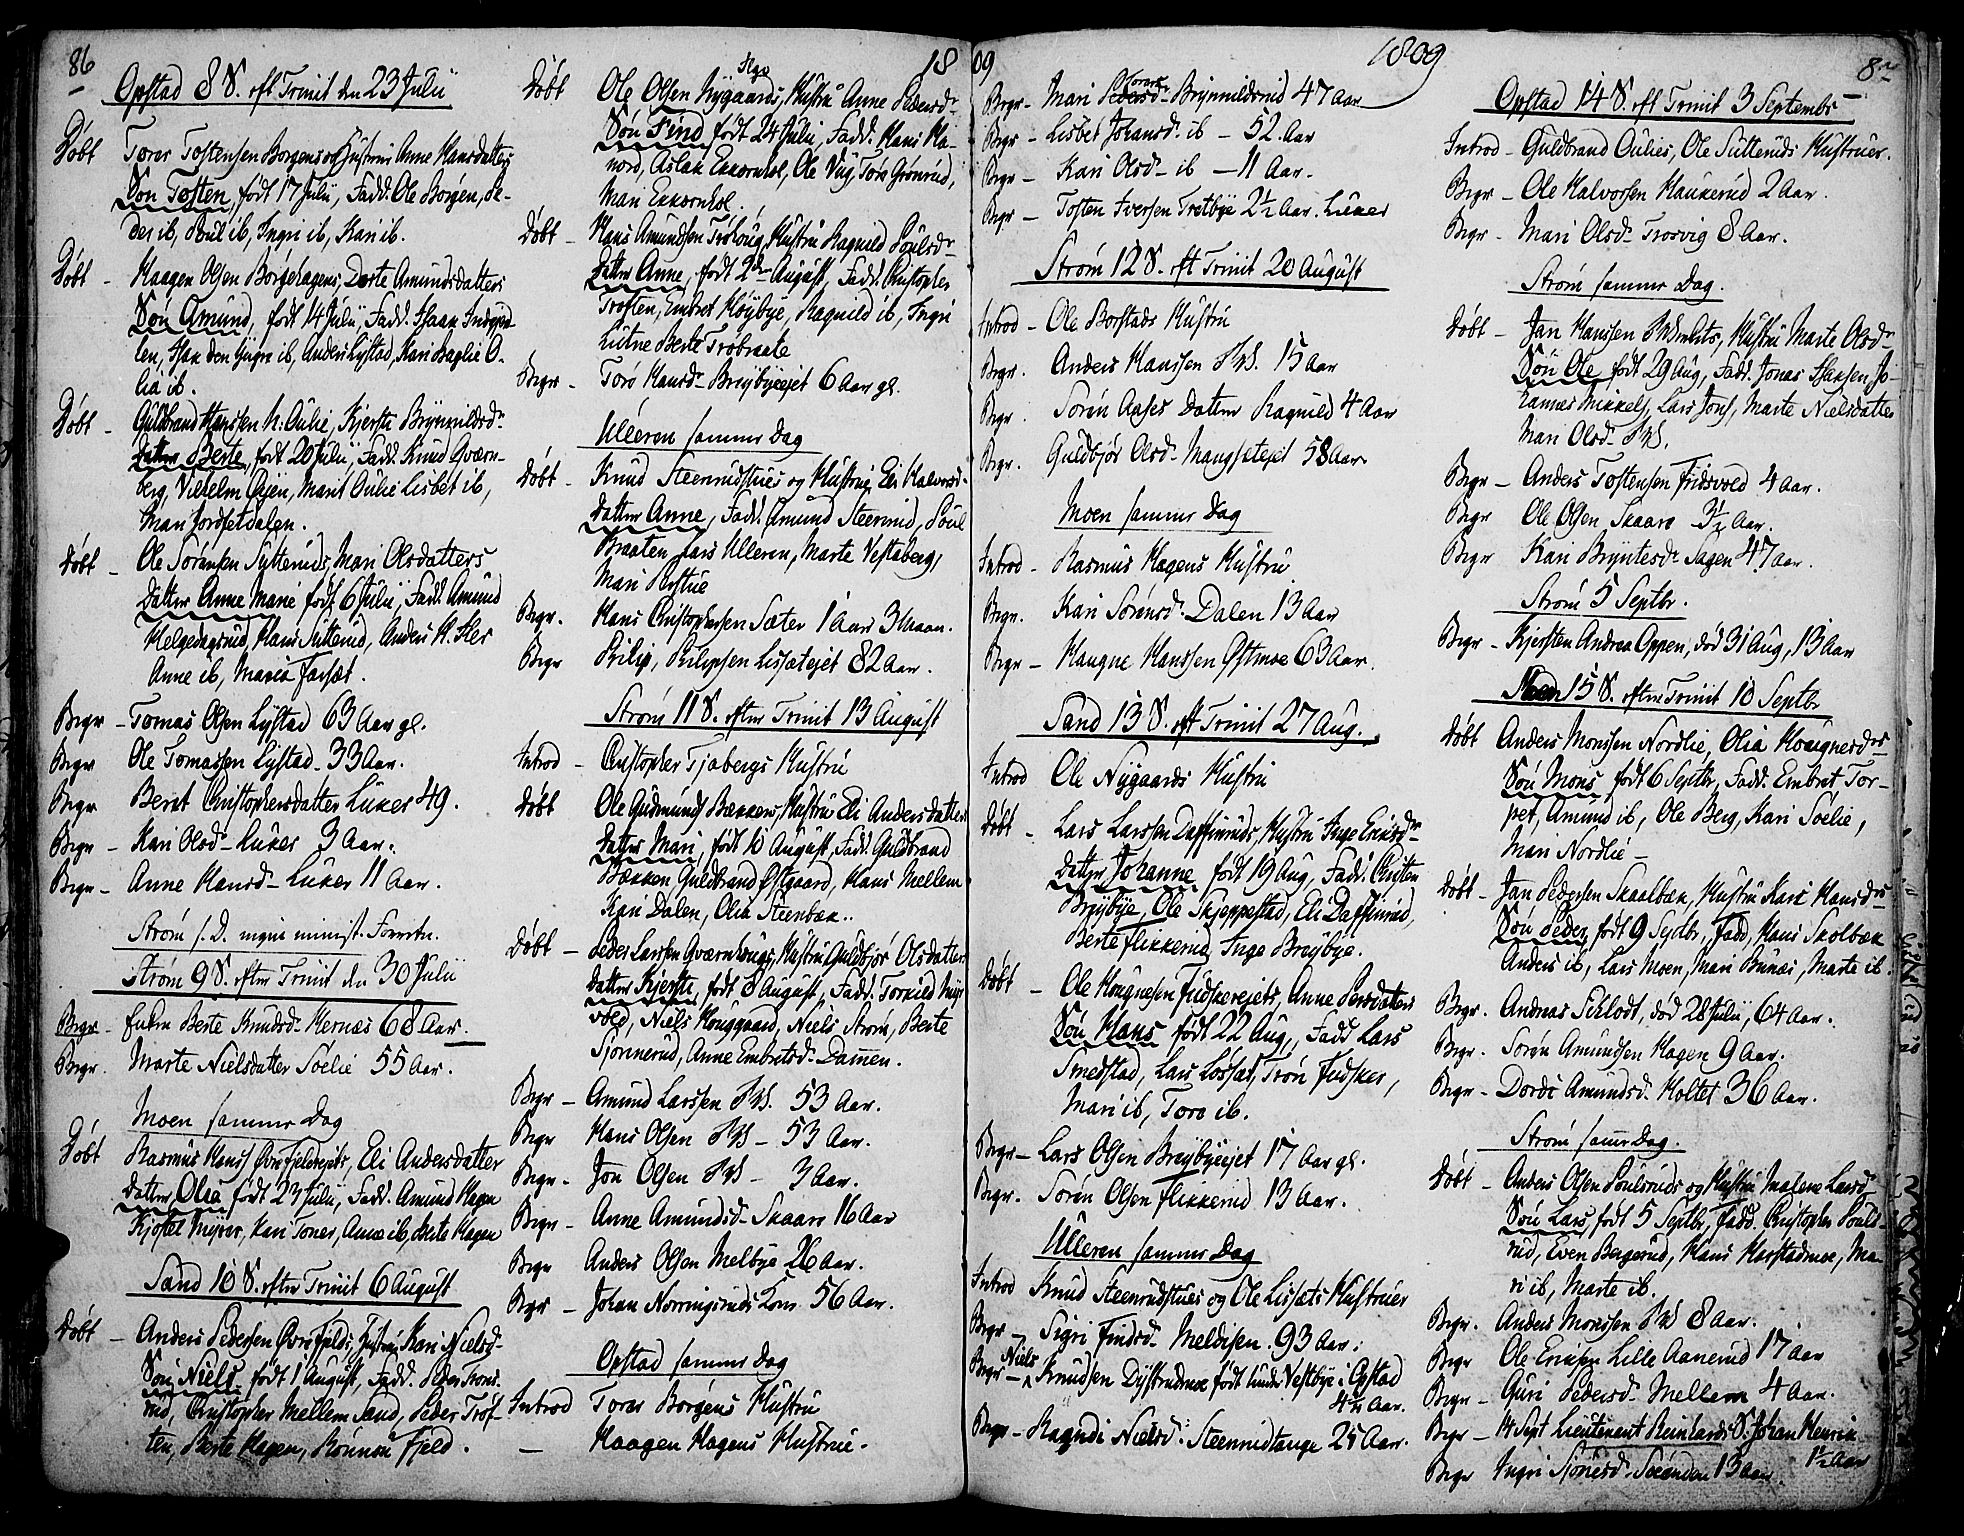 86
Opstad 8 S. eft Trinit den 23 Julii
Döbt Tores Tostensen Borgens og Hustrue Anne Hansdatters
Sön Tosten, födt 17 Julii, Fadd. Ole Borgen, Pe-
der ib, Poul ib, Ingri ib, Kari ib.
Döbt - Haagen Olsen Borgehagens, Dorte Amundsdatters
Sön Amund, födt 14 Julii, Fadd. Isaak
len, Isak den Yngre ib, Anders Lystad, Kari Baglie O-
lia ib.
Döbt - Guldbrand Hanssen N. Oulie, Kjersti Brynnildsdr
Datter Berte, födt 20 Julii, Fadd. Knud Qværn-
berg, Vilhelm Öyen, Marit Oulie Lisbet ib,
Mari Jordsetdalen.
Döbt - Ole Sörensen Sutteruds, Mari Olsdatters
Datter Anne Marie födt 6 Julii, Fadd. Amund
Helgedagsrud, Hans Sutterud, Anders N. Her
Anne ib, Maria Farset.
Begr - Tomas Olsen Lystad 63 Aar gl.
Begr Ole Tomassen Lystad - 33 Aar.
Begr Beret Christophersdatter Luker 49.
Begr - Kari Olsd - Luker 3 Aar.
Begr - Anne Hansd - Luker 11 Aar.
Ström s. D. ingen minist. Forretn.
Ström 9 S. efter Trinit den 30 Julii
Begr - Enken Berte Knudsd. Hernæs 68 Aar.
Begr. Marte Nielsdatter Söelie 55 Aar.
Moen samme Dag
Döbt Rasmus Hans Övrefjeldsejets, Eli Andersdatter
Datter Olea födt 23 Julii, Fadd. Amund Hagen
Kjöstel Myrer, Kari Toner, Anne ib, Berte Hagen
Sand 10 S. efter Trinit 6 August
Döbt - Anders Pedersen Övrefjelds, Hustrue Kari Nielsd.
Sön Niels, födt 1 August, Fadd. Peder Trons-
rud, Christopher Mellem Sand, Peder Trös-
ten, Berte Hagen, Rönnau Fjeld.
18
Döbt Ole Olsen Nygaards, Hustru Anne Pedersdr
Sön Find, födt 24 Julii, Fadd. Hans Ha-
nord, Aslak Ekkornhol, Ole Vüg, Tore Grönrud,
Mari Ekkornhol.
Döbt - Hans Amundsen Tröhoug, Hustru Ragnild Poulsdr
Datter Anne, födt 2den August, Fadd. Christopher
Trosten, Embret Höybye, Ragnild ib, Ingri
Lutne Berte Tröbraate
Begr - Torö Hansdr Bröybyeejet 6 Aar gl.
Ulleren samme Dag
Döbt - Knud Steenrudstues og Hustrue Eli Halvorsd.
Datter Anne, Fadd. Amund Steenrud, Poul
Braaten Lars Ulleren, Marte Vestaberg,
Mari Perstue
Begr. Hans Christophersen Sæter 1 Aar 3 Maan.
Begr Philip, Philipsen Lissætejet 82 Aar.
Ström 11 S. efter Trinit 13 August
Introd - Christopher Tjabergs Hustru
Döbt Ole Gudmunds Bækkens, Hustru Eli Andersdatters
Datter Mari, födt 10 August, Fadd. Guldbrand
Bækken Guldbrand Östgaard, Hans Mellem
Kari Dalen, Olia Steenbæk.
Döbt - Peder Larsen Qværnhougs, Hustru Guldbjör Olsdatters
Datter Kjersti, födt 8 August, Fadd. Torkild Myr
vold, Niels Houggaard, Niels Ström, Berte
Sjönnerud, Anne Embretsd. Dammen.
Begr - Amund Larssen 53 Aar.
Begr Hans Olsen - 53 Aar.
Begr - Jon Olsen - 3 Aar.
Begr - Anne Amundsd. Skaare 16 Aar
Begr Anders Olsen Melbye 26 Aar.
Begr - Johan Norringsruds Kone. 56 Aar.
Opstad samme Dag
Introd Tores Borgens Hustru
- Haagen Hagens Hustrue.
09
1809
Begr - Mari Brynnildsrud 47 Aar
Begr - Lisbet Johansd. ib - 52 Aar
Begr - Kari Olsd - ib - 11 Aar.
Begr - Tosten Iversen Tretbye 2 1/2 Aar. Luker
Ström 12 S. eft Trinit 20 August
Introd - Ole Borstads Hustru
Begr. Anders Hanssen 15 Aar
Begr. Sören Datter Ragnild 4 Aar
Begr. Guldbjör Olsd. Mangsætejet 58 Aar
Moen samme Dag
Introd - Rasmus Hagens Hustru
Begr. Kari Sörensd. Dalen 13 Aar
Begr - Haugne Hanssen Östmoe 63 Aar.
Sand 13 S. eft Trinit 27 Aug.
Introd Ole Nygaards Hustru
Döbt - Lars Larsen Daffinruds, Hustru Inge Ericsdr
Datter Johanne födt 19 Aug, Fadd. Christen
Bröybye, Ole Skjeppestad, Eli Daffinrud,
Berte Flikkerud, Inge Bröybye.
Döbt - Ole Hougnesen Fuskerejets, Anne Persdatters
Sön Hans födt 22 Aug, Fadd Lars
Smedstad, Lars Lösset, Trön Fusker,
Mari ib, Tore ib.
Begr - Lars Olsen Bröybyeejet 17 Aar gl.
Begr. Sören Olsen Flikkerud 13 Aar.
Ulleren samme Dag
Introd Knud Steenrudstues og Ole Lissæts Hustruer
Begr - Sigri Findsd. Meldisen 93 Aar.
Begr - Niels Knudsen Dystrudmoe födt under Vestbye i Opstad
4 1/2 Aar.
Begr - Ragndi Nielsd. Steenrudtange 25 Aar.
Opstad 14 S. eft Trinit 3 Septembr
Introd - Guldbrand Oulies, Ole Sutteruds Hustruer.
Begr - Ole Halvorsen Haukerud 2 Aar.
Begr - Mari Olsd - Trosvig 8 Aar.
Ström samme Dag.
Döbt - Jan Hanssen, Hustru Marte Olsdr
Sön Ole födt 29 Aug, Fadd. Jonas Isaksen, Jo-
hannes Mikkels, Lars Jons, Marte Nielsdatter
Mari Olsd.
Begr - Anders Tostensen Fridsvold 4 Aar.
Begr Ole Olsen Skaare 3 1/2 Aar.
Begr Kari Bryntesdr Sagen 47 Aar.
Ström 5 Septbr.
Begr - Kjersten Andrea Oppen, död 31 Aug, 13 Aar
15 S. efter Trinit 10 Septbr
Döbt Anders Monssen Nordlie, Olia Hougnesdrs
Sön Mons födt 6 Septbr, Fadd. Embret Tor-
pet, Amund ib, Ole Berg, Kari Söelie,
Mari Nordlie -
Döbt - Jan Pedersen Skaalbæk, Hustru Kari Hansdrs
Sön Peder, födt 9 Septbr, Fadd. Hans Skolbæk
Anders ib, Lars Moen, Mari Bunæs, Marte ib.
Begr. Andreas Schlodt, död 28 Julii, 64 Aar.
Begr. Sören Amundsen Hagen 9 Aar.
Begr - Dorde Amundsd. Holtet 36 Aar.
Ström samme Dag.
Döbt - Anders Olsen Poulsruds og Hustru Malene Larsd.
Sön Lars, födt 5 Septbr, Fadd. Christopher Pouls-
rud, Even Bergerud, Hans Harstadmoe, Ma-
ri ib, Marte ib.
Begr. Anders Monssen 8 Aar.
Begr Ole Ericsen Lille Aanerud 17 Aar
Begr - Guri Pedersd. Mellem 4 Aar.
Begr - 14 Sept Lieutenant Reinhards S. Johan Henrik
1 1/2 Aar
Begr Ingri 13 Aar.